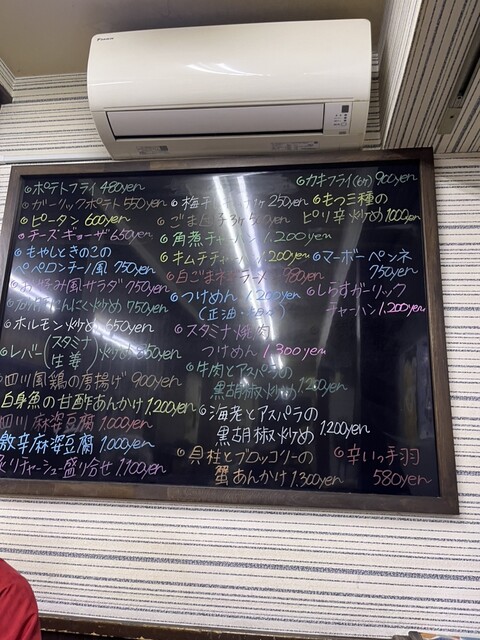 DAIKIN
ポテトフライ 480yen
ガーリックポテト 550yen
ピータン 600yen
チーズギョーザ 650yen
もやしときのこの
ペペロンチーノ風 750yen
風サラダ 750yen
にんにく炒め 750yen
ホルモン炒め 650yen
レバー(スタミナ 生姜)炒め
四川風鶏の唐揚げ 900yen
白身魚の甘酢あんかけ 1,200yen
四川麻婆豆腐 1,000yen
激辛麻婆豆腐 1,000yen
炙りチャーシュー盛り合せ 1,100yen
梅干し 250yen
ごま団子
角煮チャーハン 1,200yen
キムチチャーハン 1,200yen
白ごま ラーメン 980yen
つけめん 1,200yen
スタミナ焼肉
つけめん 1,300yen
牛肉とアスパラの
黒胡椒炒め 1,200yen
海老とアスパラの
黒胡椒炒め 1,200yen
貝柱とブロッコリーの
蟹あんかけ 1,300yen
カキフライ(6ケ) 900yen
もつ三種の
ピリ辛炒め 1000yen
マーボーペンネ
750yen
しらすガーリック
チャーハン 1,200yen
辛いっ手羽
580yen